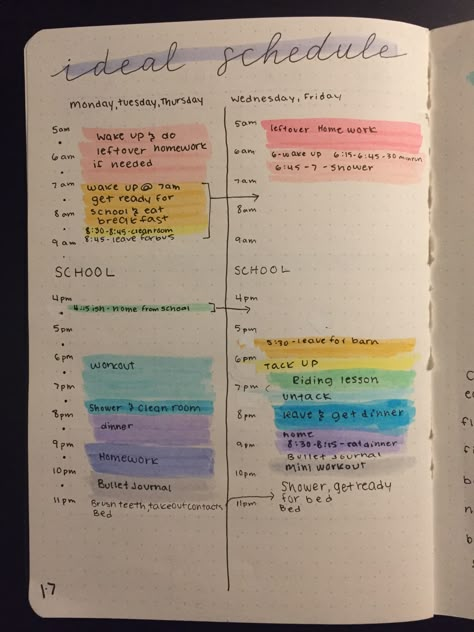 ideal schedule
monday, tuesday, Thursday
5am
wake up & do
leftover homework
6am
if needed
7am
wake up @ 7am
get ready for
8am
school & eat
breckfast
8:30-8:45-clean room
9am
8:45-leave for bus
SCHOOL
4pm
4:15ish-home from school
5pm
6pm
workout
7pm
Shower & clean room
8pm
dinner
9pm
Homework
10pm
Bullet Journal
11pm
Brush teeth, take out contacts,
Bed
17
Wednesday, Friday
5am
leftover Home work
6am
6-wake up 6:15-6:45-30 min run
6:45-7-shower
7am
8am
9am
SCHOOL
4pm
5pm
5:30-leave for barn
6pm
TACK UP
Riding lesson
7pm
untack
8pm
leave & get dinner
home
9pm
eat dinner
Bullet Journal
10pm
mini workout
Shower, get ready
for bed
11pm
Bed